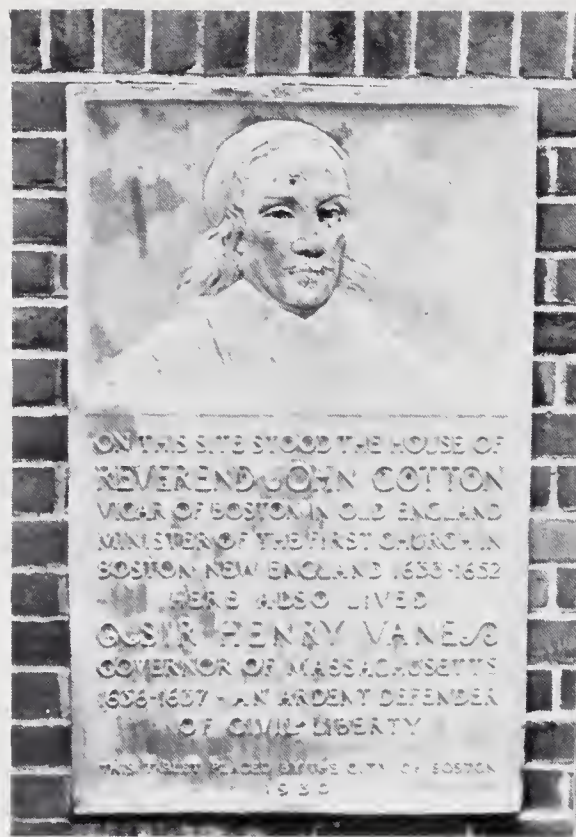 ON THIS SITE STOOD THE HOUSE OF
REVEREND JOHN COTTON
VICAR OF BOSTON IN OLD ENGLAND
MINISTER OF THE FIRST CHURCH IN
BOSTON NEW ENGLAND 1633-1652
HERE ALSO LIVED
SIR HENRY VANE
GOVERNOR OF MASSACHUSETTS
1636-1637 - AN ARDENT DEFENDER
OF CIVIL LIBERTY
THIS TABLET PLACED BY THE CITY OF BOSTON
1930